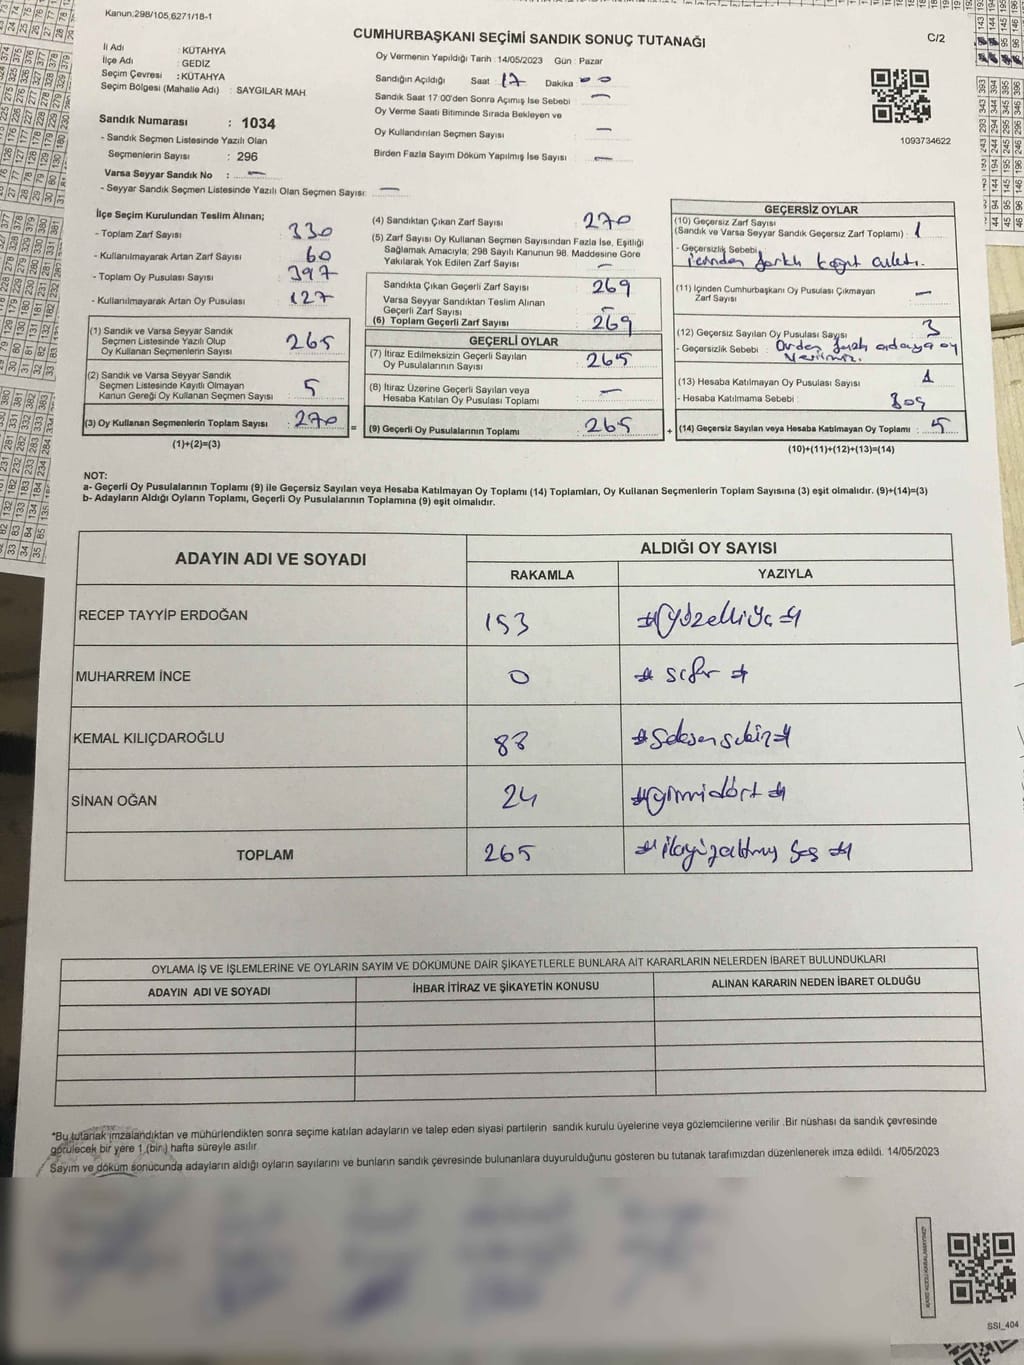 Kanun,298/105,6271/18-1
CUMHURBAŞKANI SEÇİMİ SANDIK SONUÇ TUTANAĞI
C/2
İl Adı : KÜTAHYA
İlçe Adı : GEDİZ
Seçim Çevresi : KÜTAHYA
Seçim Bölgesi (Mahalle Adı) : SAYGILAR MAH.
Sandık Numarası : 1034
- Sandık Seçmen Listesinde Yazılı Olan
Seçmenlerin Sayısı : 296
Varsa Seyyar Sandık No : —
- Seyyar Sandık Seçmen Listesinde Yazılı Olan Seçmen Sayısı: —
Oy Vermenin Yapıldığı Tarih :14/05/2023 Gün : Pazar
Sandığın Açıldığı Saat : 17 Dakika : 00
Sandık Saat 17:00'den Sonra Açımış İse Sebebi : —
Oy Verme Saati Bitiminde Sırada Bekleyen ve
Oy Kullandırılan Seçmen Sayısı : —
Birden Fazla Sayım Döküm Yapılmış İse Sayısı : —
1093734622
İlçe Seçim Kurulundan Teslim Alınan;
- Toplam Zarf Sayısı : 330
- Kullanılmayarak Artan Zarf Sayısı : 60
- Toplam Oy Pusulası Sayısı : 397
- Kullanılmayarak Artan Oy Pusulası : 127
(1) Sandık ve Varsa Seyyar Sandık
Seçmen Listesinde Yazılı Olup
Oy Kullanan Seçmenlerin Sayısı : 265
(2) Sandık ve Varsa Seyyar Sandık
Seçmen Listesinde Kayıtlı Olmayan
Kanun Gereği Oy Kullanan Seçmen Sayısı : 5
(3) Oy Kullanan Seçmenlerin Toplam Sayısı : 270
(1)+(2)=(3)
(4) Sandıktan Çıkan Zarf Sayısı : 270
(5) Zarf Sayısı Oy Kullanan Seçmen Sayısından Fazla İse, Eşitliği
Sağlamak Amacıyla; 298 Sayılı Kanunun 98. Maddesine Göre
Yakılarak Yok Edilen Zarf Sayısı : —
Sandıkta Çıkan Geçerli Zarf Sayısı : 269
Varsa Seyyar Sandıktan Teslim Alınan
Geçerli Zarf Sayısı : —
(6) Toplam Geçerli Zarf Sayısı : 269
GEÇERLİ OYLAR
(7) İtiraz Edilmeksizin Geçerli Sayılan
Oy Pusulalarının Sayısı : 265
(8) İtiraz Üzerine Geçerli Sayılan veya
Hesaba Katılan Oy Pusulası Toplamı : —
= (9) Geçerli Oy Pusulalarının Toplamı : 265
GEÇERSİZ OYLAR
(10) Geçersiz Zarf Sayısı
(Sandık ve Varsa Seyyar Sandık Geçersiz Zarf Toplamı) : 1
- Geçersizlik Sebebi
içinden farklı kağıt çıktı.
(11) İçinden Cumhurbaşkanı Oy Pusulası Çıkmayan
Zarf Sayısı : —
(12) Geçersiz Sayılan Oy Pusulası Sayısı : 3
- Geçersizlik Sebebi : Birden fazla adaya oy
verilmiş.
(13) Hesaba Katılmayan Oy Pusulası Sayısı : 1
- Hesaba Katılmama Sebebi : Boş
+ (14) Geçersiz Sayılan veya Hesaba Katılmayan Oy Toplamı : 5
(10)+(11)+(12)+(13)=(14)
NOT:
a- Geçerli Oy Pusulalarının Toplamı (9) ile Geçersiz Sayılan veya Hesaba Katılmayan Oy Toplamı (14) Toplamları, Oy Kullanan Seçmenlerin Toplam Sayısına (3) eşit olmalıdır. (9)+(14)=(3)
b- Adayların Aldığı Oyların Toplamı, Geçerli Oy Pusulalarının Toplamına (9) eşit olmalıdır.
ADAYIN ADI VE SOYADI ALDIĞI OY SAYISI
RAKAMLA YAZIYLA
RECEP TAYYİP ERDOĞAN 153 #yüzelliüç#
MUHARREM İNCE 0 #sıfır#
KEMAL KILIÇDAROĞLU 88 #seksensekiz#
SİNAN OĞAN 24 #yirmidört#
TOPLAM 265 #ikiyüzaltmış beş#
OYLAMA İŞ VE İŞLEMLERİNE VE OYLARIN SAYIM VE DÖKÜMÜNE DAİR ŞİKAYETLERLE BUNLARA AİT KARARLARIN NELERDEN İBARET BULUNDUKLARI
ADAYIN ADI VE SOYADI İHBAR İTİRAZ VE ŞİKAYETİN KONUSU ALINAN KARARIN NEDEN İBARET OLDUĞU
*Bu tutanak imzalandıktan ve mühürlendikten sonra seçime katılan adayların ve talep eden siyasi partilerin sandık kurulu üyelerine veya gözlemcilerine verilir .Bir nüshası da sandık çevresinde
görülecek bir yere 1 (bir ) hafta süreyle asılır.
Sayım ve döküm sonucunda adayların aldığı oyların sayılarını ve bunların sandık çevresinde bulunanlara duyurulduğunu gösteren bu tutanak tarafımızdan düzenlenerek imza edildi. 14/05/2023
SSI_404